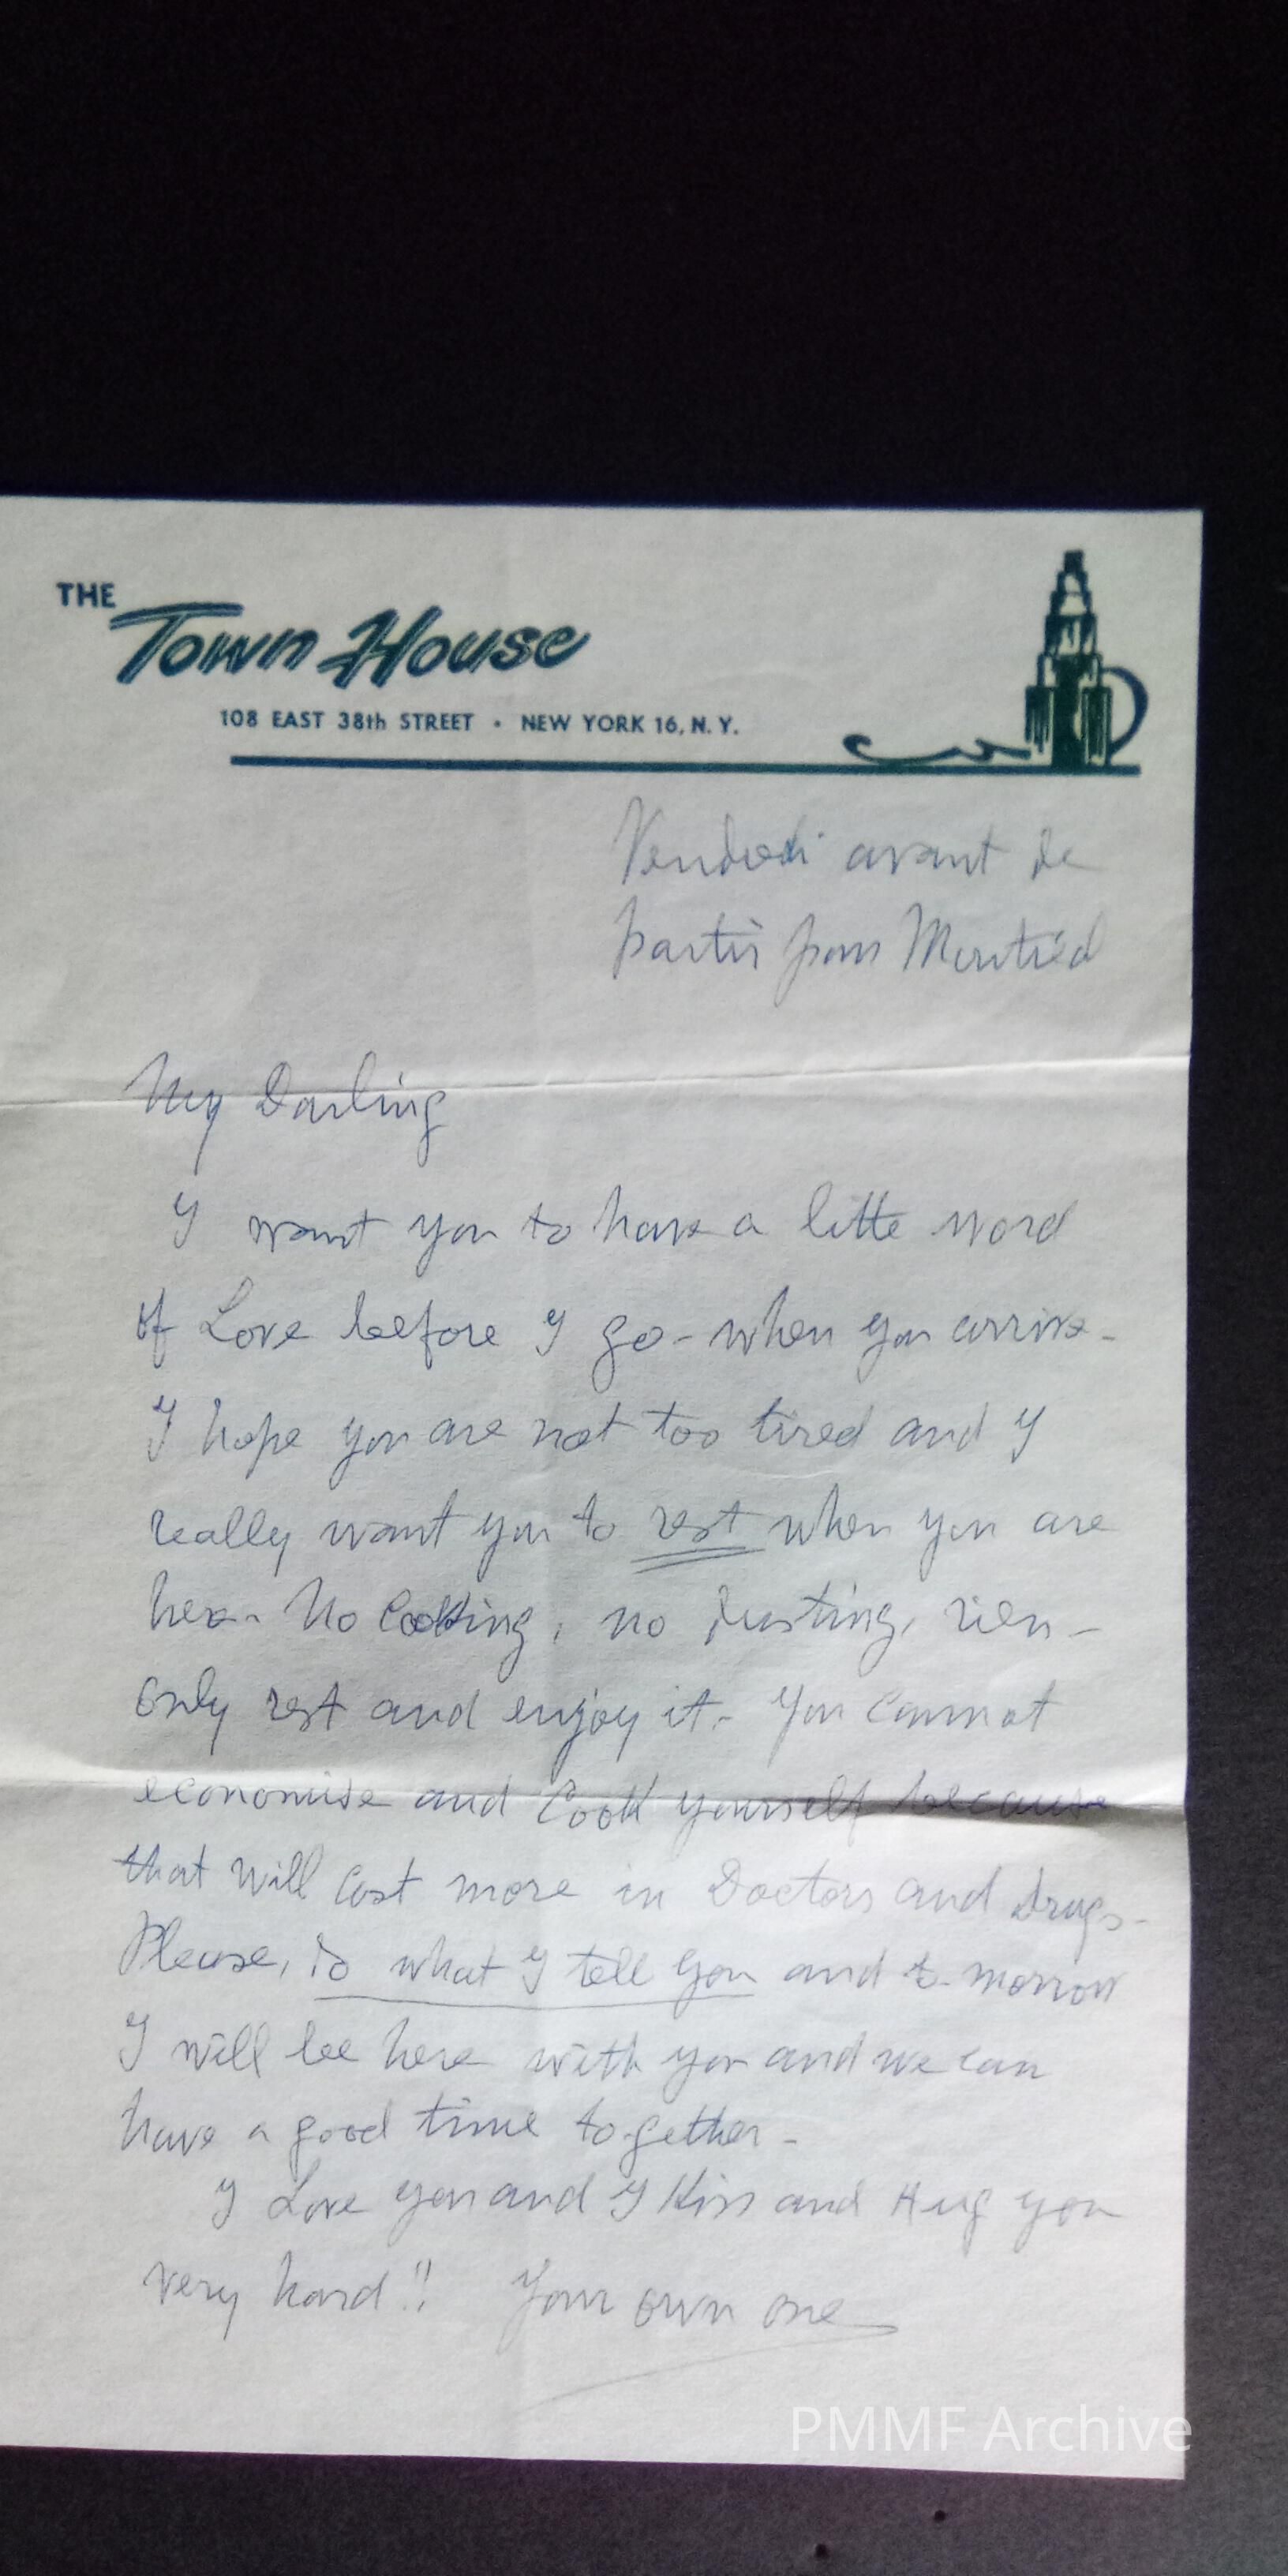 THE
Town House
108 EAST 38th STREET • NEW YORK 16, N. Y.
Vendredi avant de
partir pour Montréal
My Darling
I want you to have a litte word
of Love before I go - when you arrive -
I hope you are not too tired and I
really want you to rest when you are
here - No Cooking, no dusting, rien -
only rest and enjoy it - You Cannot
economise and Cook yourself because
that will Cost more in Doctors and Drugs -
Please, do what I tell you and to-morrow
I will be here with you and we can
have a good time together -
I Love you and I Kiss and Hug you
very hard!! Your own one
PMMF Archive